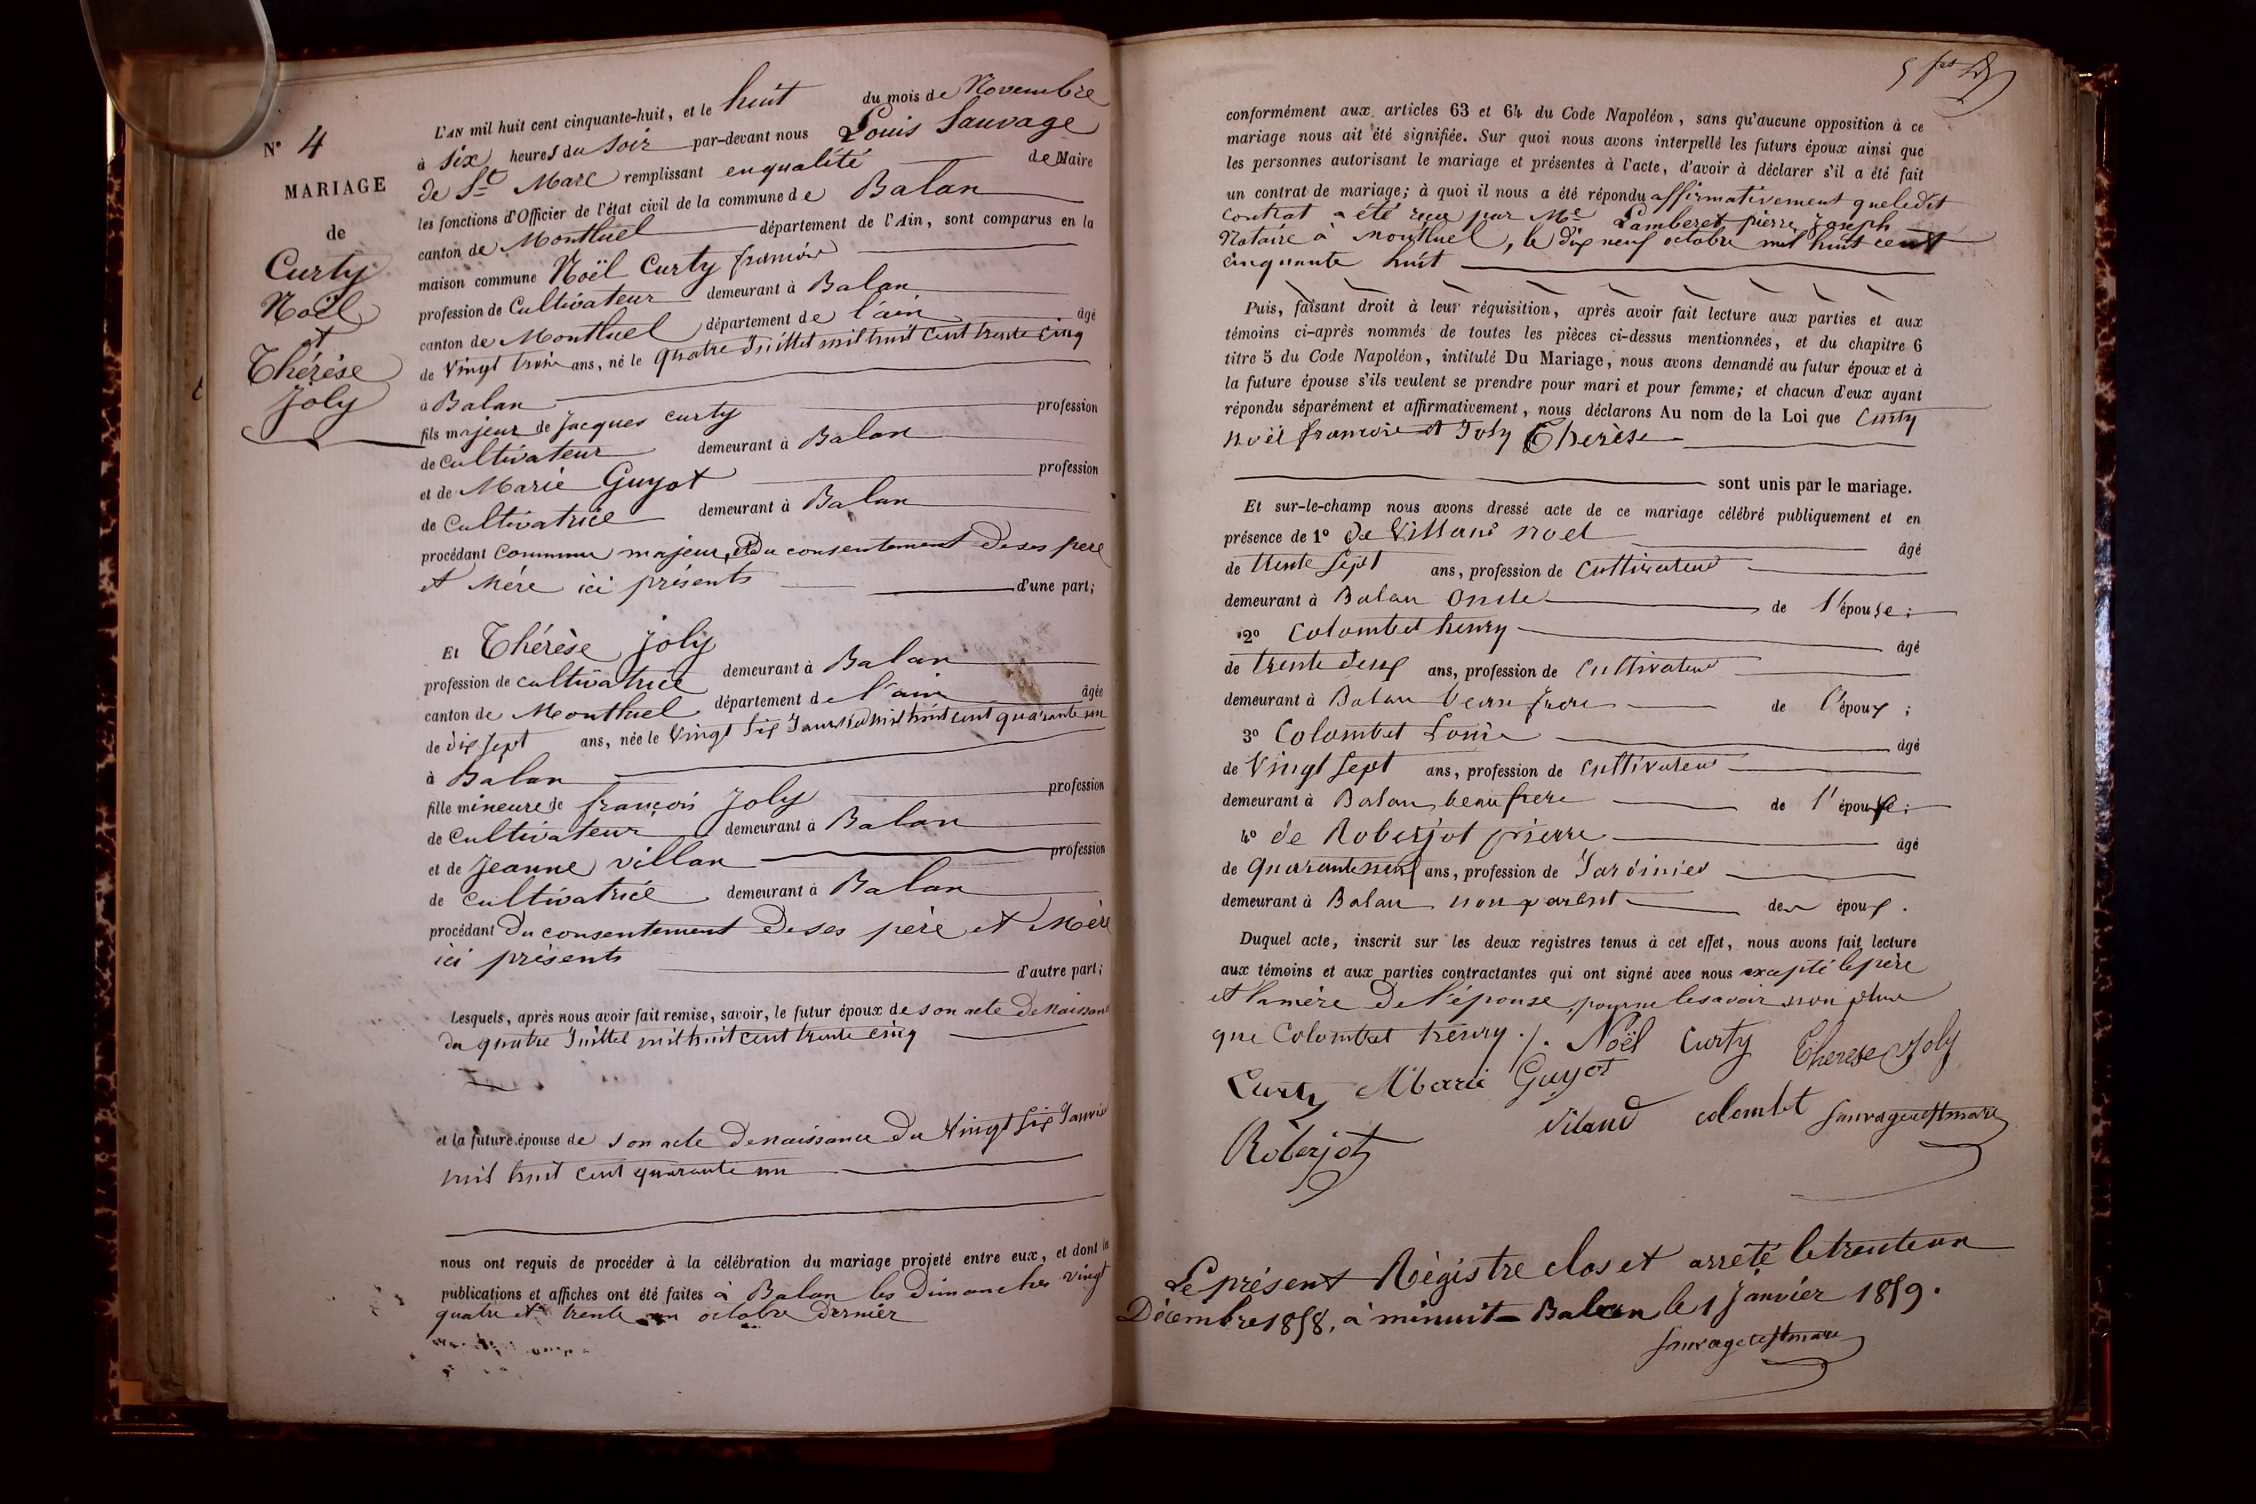 L'AN mil huit cent cinquante-huit, et le huit du mois de Novembre
à six heures du soir par-devant nous Louis Sauvage
de St Marc remplissant en qualité de Maire
les fonctions d'Officier de l'état civil de la commune de Balan
canton de Montluel département de l'Ain, sont comparus en la
maison commune Noël Curty françois
profession de Cultivateur demeurant à Balan
canton de Montluel département de l'ain âgé
de Vingt trois ans, né le quatre Juillet mil huit Cent trente cinq
à Balan
fils majeur de Jacques curty profession
de cultivateur demeurant à Balan
et de Marie Guyot profession
de cultivatrice demeurant à Balan
procédant comme majeur, et du consentement de ses pere
et Mère ici présents d'une part;
N° 4
MARIAGE
de
Curty
Noël
et
Thérèse
Joly
Et Thérèse Joly
profession de cultivatrice demeurant à Balan
canton de Montluel département de l'ain âgée
de dix sept ans, née le Vingt six Janvier mil huit cent quarante un
à Balan
fille mineure de françois Joly profession
de cultivateur demeurant à Balan
et de Jeanne villan profession
de cultivatrice demeurant à Balan
procédant du consentement de ses père et Mère
ici présents d'autre part;
Lesquels, après nous avoir fait remise, savoir, le futur époux de son acte de naissance
du quatre Juillet mil huit cent trente cinq
et la future épouse de son acte de naissance du Vingt six Janvier
mil huit cent quarante un
nous ont requis de procéder à la célébration du mariage projeté entre eux, et dont les
publications et affiches ont été faites à Balan les Dimanches vingt
quatre et trente un octobre dernier
conformément aux articles 63 et 64 du Code Napoléon, sans qu'aucune opposition à ce
mariage nous ait été signifiée. Sur quoi nous avons interpellé les futurs époux ainsi que
les personnes autorisant le mariage et présentes à l'acte, d'avoir à déclarer s'il a été fait
un contrat de mariage; à quoi il nous a été répondu affirmativement que ledit
contrat a été reçu par Me Lamberet pierre Joseph
Notaire à Montluel, le dix neuf octobre mil huit cent
cinquante huit
Puis, faisant droit à leur réquisition, après avoir fait lecture aux parties et aux
témoins ci-après nommés de toutes les pièces ci-dessus mentionnées, et du chapitre 6
titre 5 du Code Napoléon, intitulé Du Mariage, nous avons demandé au futur époux et à
la future épouse s'ils veulent se prendre pour mari et pour femme; et chacun d'eux ayant
répondu séparément et affirmativement, nous déclarons Au nom de la Loi que Curty
noël francois et Joly Therèse
sont unis par le mariage.
Et sur-le-champ nous avons dressé acte de ce mariage célébré publiquement et en
présence de 1° de Villand noel âgé
de trente sept ans, profession de Cultivateur
demeurant à Balan Oncle de l'épouse;
2° Colombet henry âgé
de trente deux ans, profession de Cultivateur
demeurant à Balan beau frere de l'époux;
3° Colombet Louis âgé
de Vingt sept ans, profession de Cultivateur
demeurant à Balan beau frere de l'époux;
4° de Roberjot pierre âgé
de quarante neuf ans, profession de Jardinier
demeurant à Balan non parent des époux.
Duquel acte, inscrit sur les deux registres tenus à cet effet, nous avons fait lecture
aux témoins et aux parties contractantes qui ont signé avec nous excepté le père
et la mère De l'épouse, pour ne le savoir non plus
que Colombet henry ./. Noël Curty Therese Joly
Curty Marie Guyot
Viland colombet Sauvage de St marc
Roberjot
Le présent Régistre clos et arreté le trente un
Décembre 1858, à minuit Balan le 1 Janvier 1859.
Sauvage de St marc